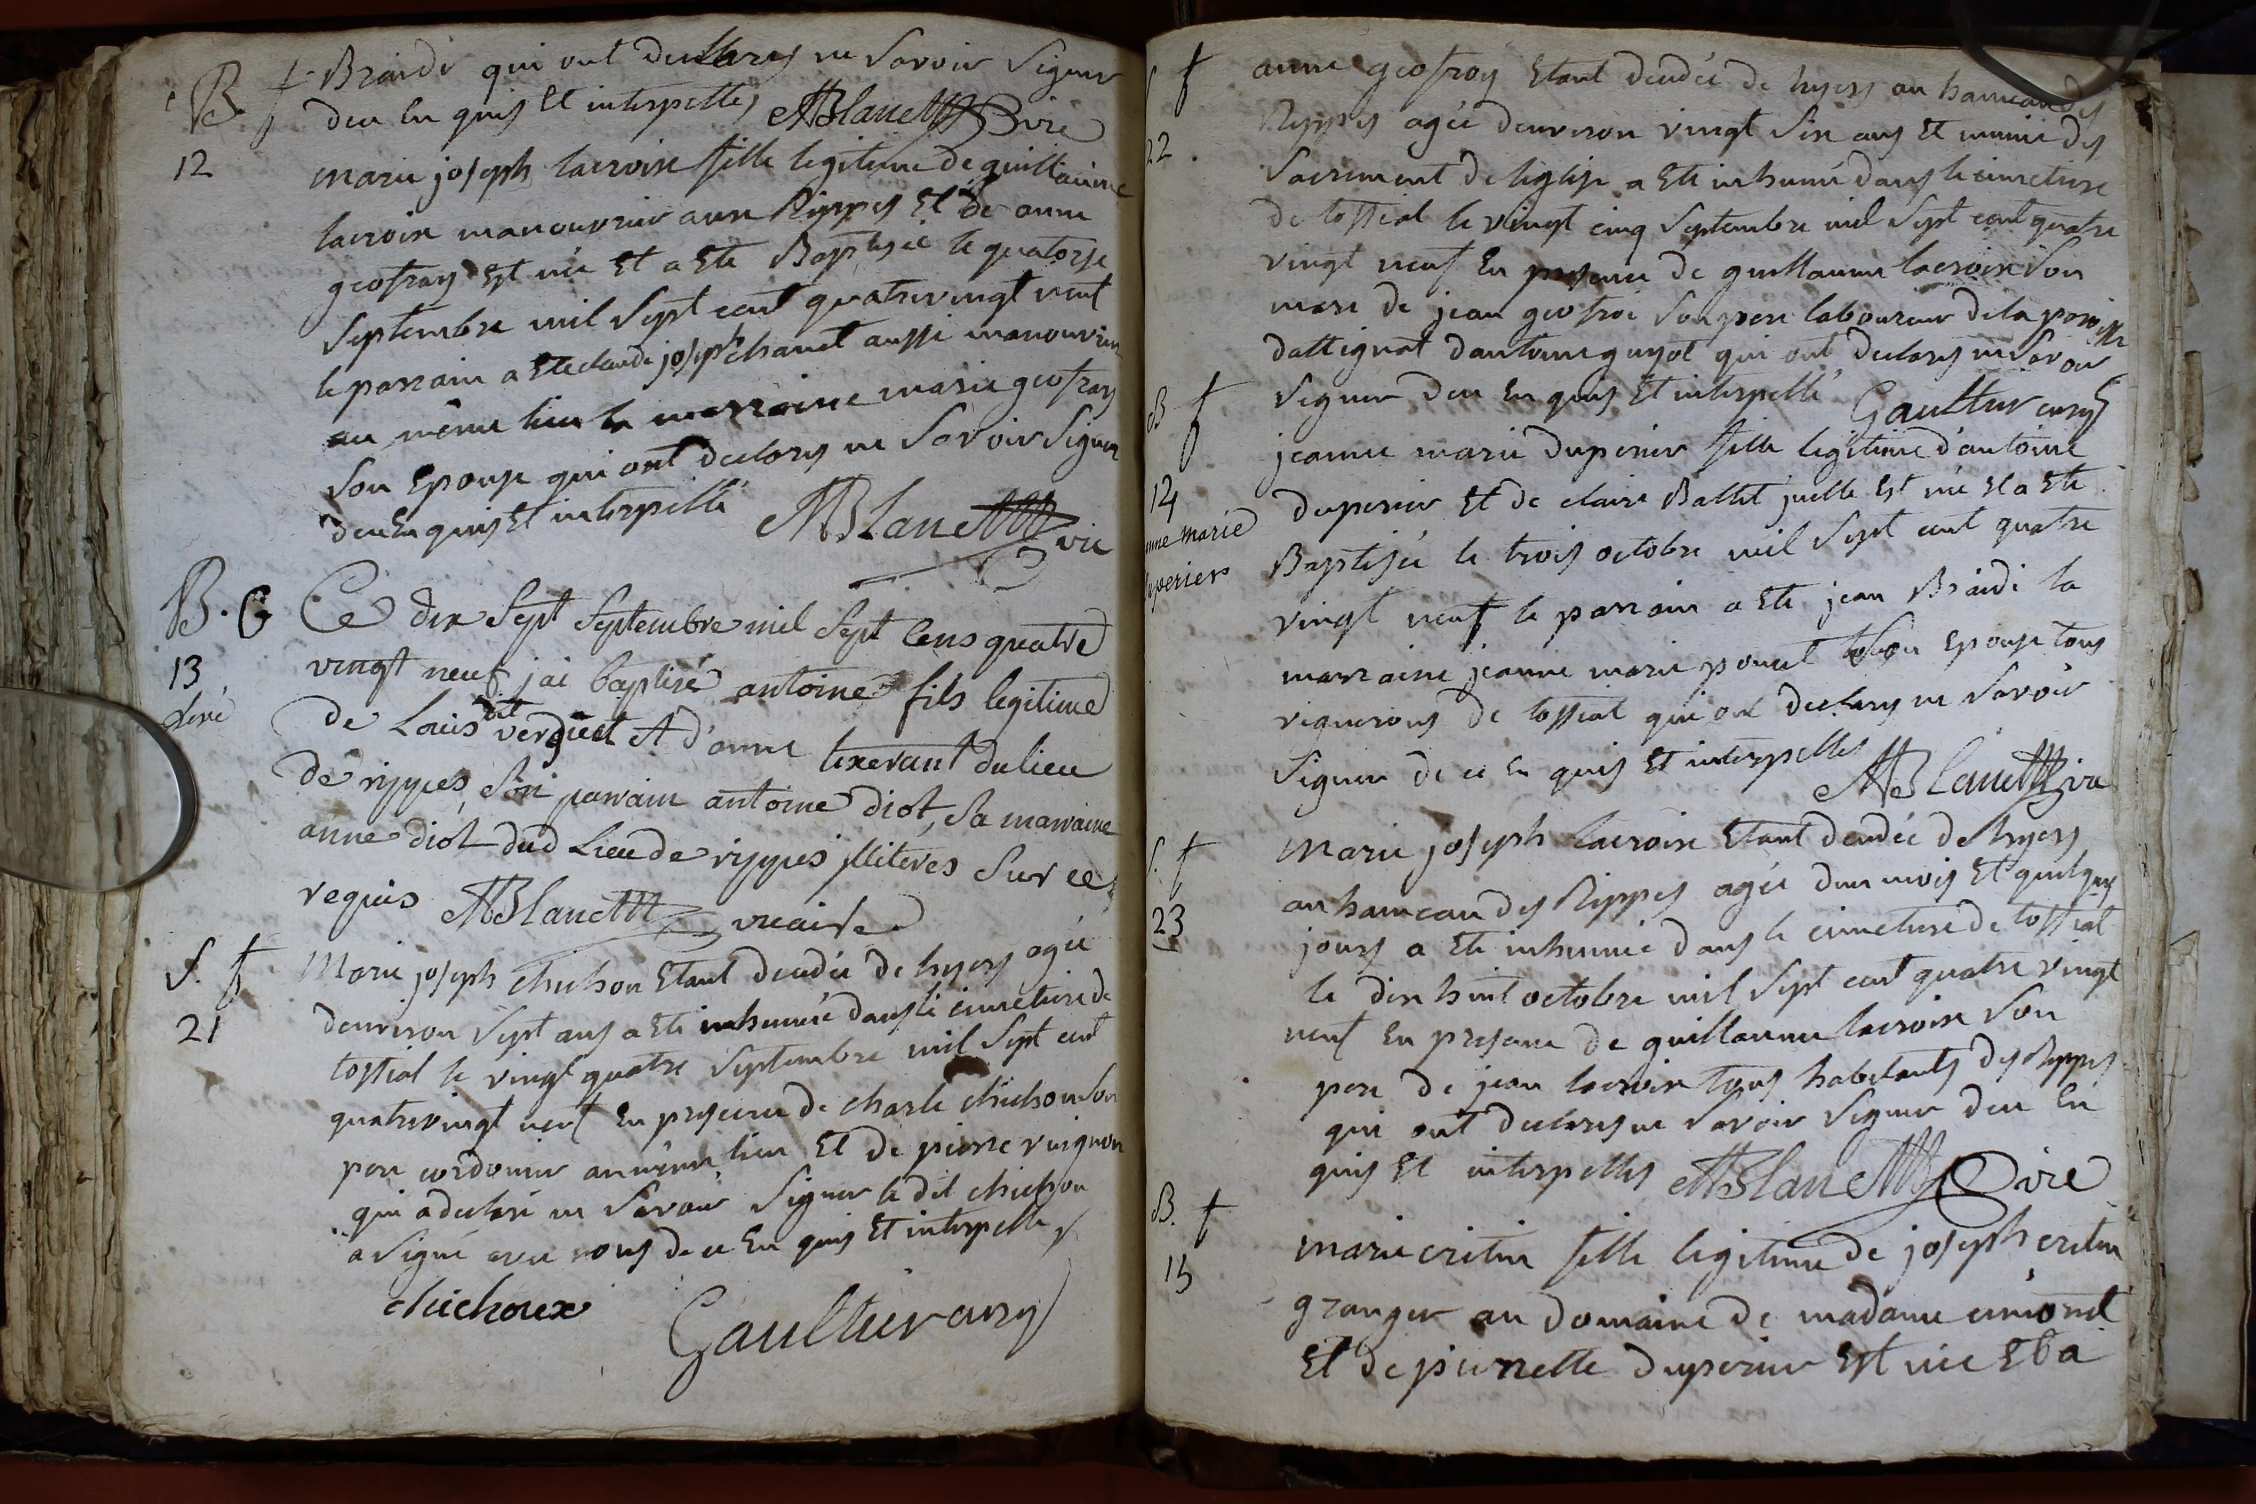 Braidi qui ont declarés ne savoir signer
B f
deu En quis Et interpellés ABlanc vire
12
marie joseph lacroix fille legitime de guillaume
lacroix manouvrier aux Rippes Et de anne
geofray Est née Et a Ete Baptisée le quatorse
Septembre mil Sept cent quatrevingt neuf
le parrain a Ete claude joseph chanel aussi manouvrier
au même lieu la marraine marie geofray
Son Epouse qui ont declarés ne Savoir Signer
deu En quis Et interpellé ABlanc vic
B. G
Ce dix Sept Septembre mil Sept Cens quatre
13
vingt neuf j'ai baptisé antoine fils legitime
de Louis dit verguet et d'anne texerant du lieu
de rippes, Son parrain antoine diot, Sa marraine
anne diot dud Lieu de rippes illiterés Sur ce
requis ABlanc vicaire
S. f
Marie joseph chichon Etant decedée de hyers agée
21
denviron Sept ans a Ete inhumée dans le cimetiere de
tossiat le vingt quatre Septembre mil Sept cent
quatrevingt neuf En presence de charle chichon Son
pere cordonier au même lieu Et de pierre vuignon
qui a declaré ne Savoir Signer le dit chichon
a Signé avec nous de ce En quis Et interpellés
chichoux Gaultier curé
f
anne geofroy Etant decedée de hyers au hameau des
22.
Rippes agée denviron vingt Six ans Et munie des
Sacrement de leglise a Ete inhumé dans le cimetiere
de tossiat le vingt cinq Septembre mil Sept cent quatre
vingt neuf En presence de guillaume lacroix Son
mari de jean geofroi Son pere laboureur de la paroisse
dattignat dantoine guyot qui ont declarés ne Savoir
Signer deu En quis Et interpellé Gaultier curé
B f
jeanne marie duperier fille legitime d'antoine
14
duperier Et de claire Ballet juelle Est née Et a Ete
anne marie
Baptisée le trois octobre mil Sept cent quatre
duperier
vingt neuf le parrain a Ete jean Braidi la
marraine jeanne marie poncet Son Epouse tous
vignerons de tossiat qui ont declarés ne Savoir
Signer de ce En quis Et interpellés ABlanc vire
S. f
Marie joseph lacroix Etant decedée de hyers
au hameau des Rippes agée dun mois Et quelques
23
jours a Ete inhumée dans le cimetiere de tossiat
le dix huit octobre mil Sept cent quatre vingt
neuf En presence de guillaume lacroix Son
pere de jean lacroix tous habitants des Rippes
qui ont declarés ne Savoir Signer deu En
quis Et interpellés ABlanc vire
B. f
marie cretin fille legitime de joseph cretin
15
granger au domaine de madame cimonet
Et de pierrette duperier Est née Et a